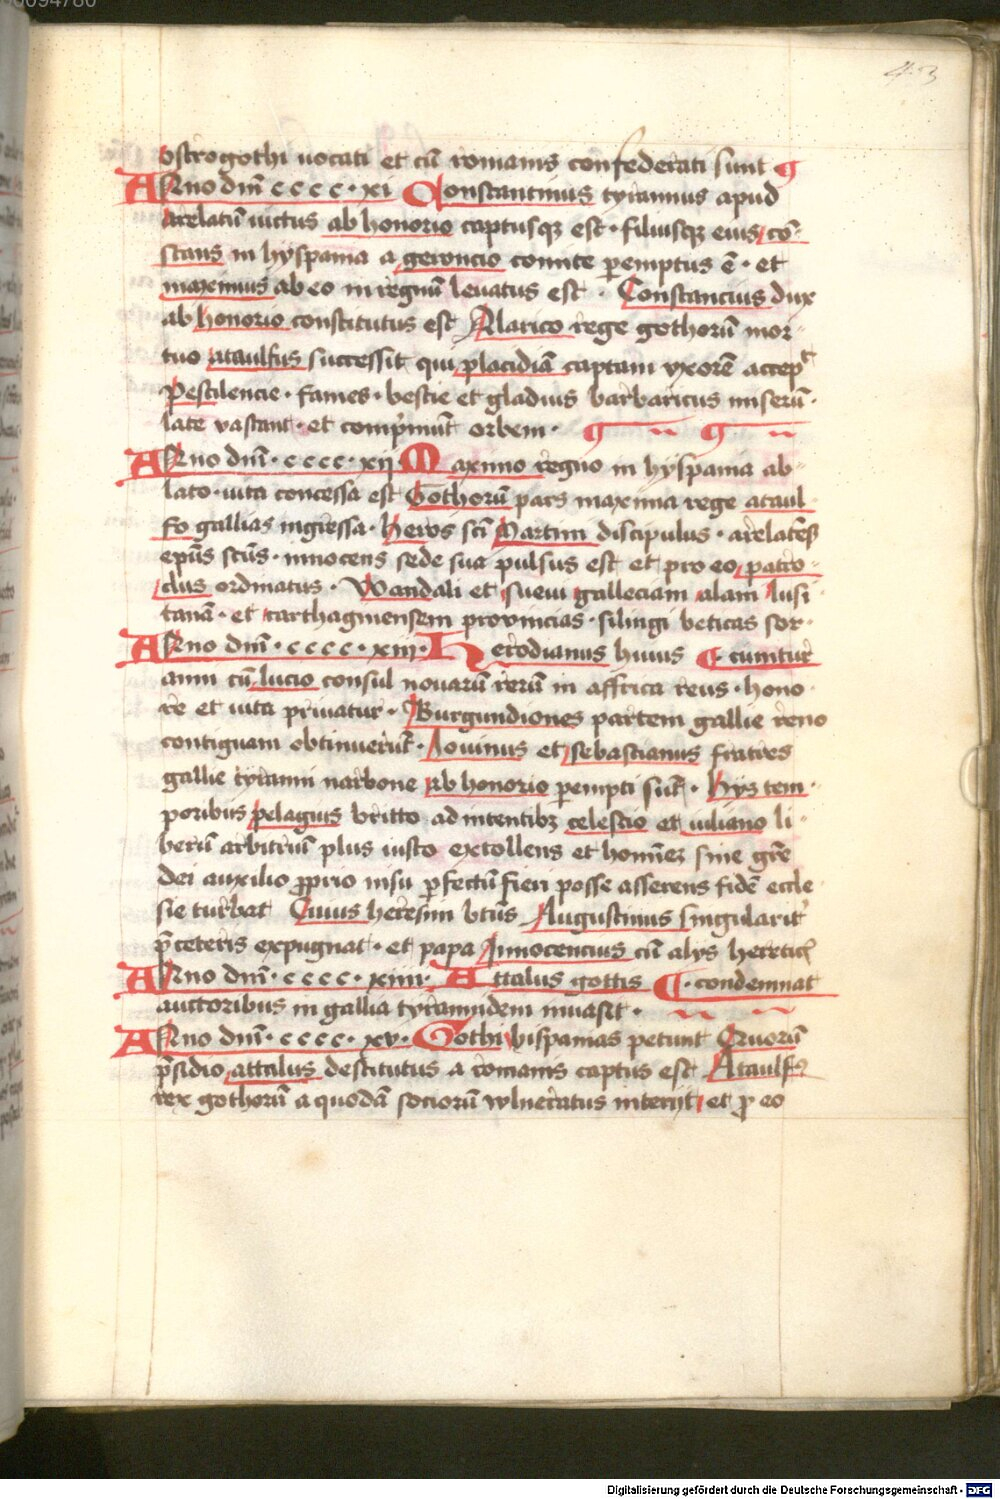 43
ostrogothi uocati et cū romanis confederati sunt ¶
Anno dnī cccc · xi Constantinus tyrannus apud
arelatū uictus ab honorio captusqȝ est · filiusqȝ eius cō-
stans in hyspania a geroncio comite ꝑemptus ē · et
maximus ab eo in regnū leuatus est · Constancius dux
ab honorio constitutus est Alarico rege gothorū mor-
tuo ataulfus successit qui placidiā captam vxorē accep̄
Pestilencie · fames · bestie et gladius barbaricus miserū
late vastant · et comp̄mūt orbem ·
Anno dnī · cccc · xij Maximo regno in hyspania ab-
lato · uita concessa est Gothorū pars maxima rege ataul
fo gallias ingressa · heros scī Martini discipulus · arelatēs
epūs scūs · innocens sede sua pulsus est et pro eo patro-
clus ordinatus · Wandali et sueui galleciam alani lusi
tanā · et carthaginensem prouincias · silingi beticas sor-
Anno dnī · cccc · xiii · herodianus huius ¶ · ciuntur
anni cū lucio consul nouarū rerū in affrica reus · hono
re et uita priuatur · Burgundiones partem gallie reno
contiguam obtinuerūt · Iouinus et sebastianus fratres
gallie tyranni narbone ab honorio ꝑempti sūt · hys tem
poribus pelagius britto adintentibȝ celestio et iuliano li-
berū arbitriū plus iusto extollens et hominē sine grē
dei auxilio ꝓprio nisu ꝑfectū fieri posse asserens fidē eccle
sie turbat Cuius heresim btūs Augustinus singularit̄
p̄ ceteris expugnat · et papa Innocencius cū alys heretic̄
Anno dnī · cccc · xiiii · Attalus gottis ¶ · condemnat
auctoribus in gallia tyrannidem inuasit ·
Anno dnī · cccc · xv · Gothi hispanias petunt Quorū
p̄sidio attalus destitutus a romanis captus est Ataulfꝰ
rex gothorū a quodā sociorū wlneratus interijt et ꝓ eo
Digitalisierung gefördert durch die Deutsche Forschungsgemeinschaft - DFG